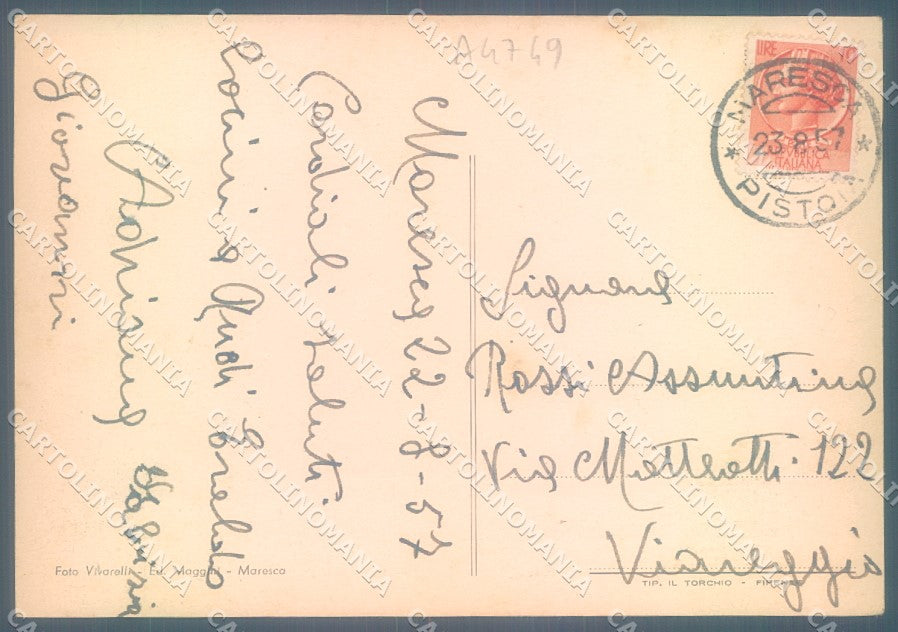 A4749
LIRE 10
REPUBBLICA
ITALIANA
MARESCA
* 23.8.57 *
PISTOIA
Maresca 22-8-57
Cordiali Saluti
Rudi Eraldo
Adriana
Giovanni
Signora
Rossi Assuntina
Via Matteotti. 122
Viareggio
Foto Vivarelli - Ed. Maggini - Maresca
TIP. IL TORCHIO - FIRENZE
CARTOLINOMANIA